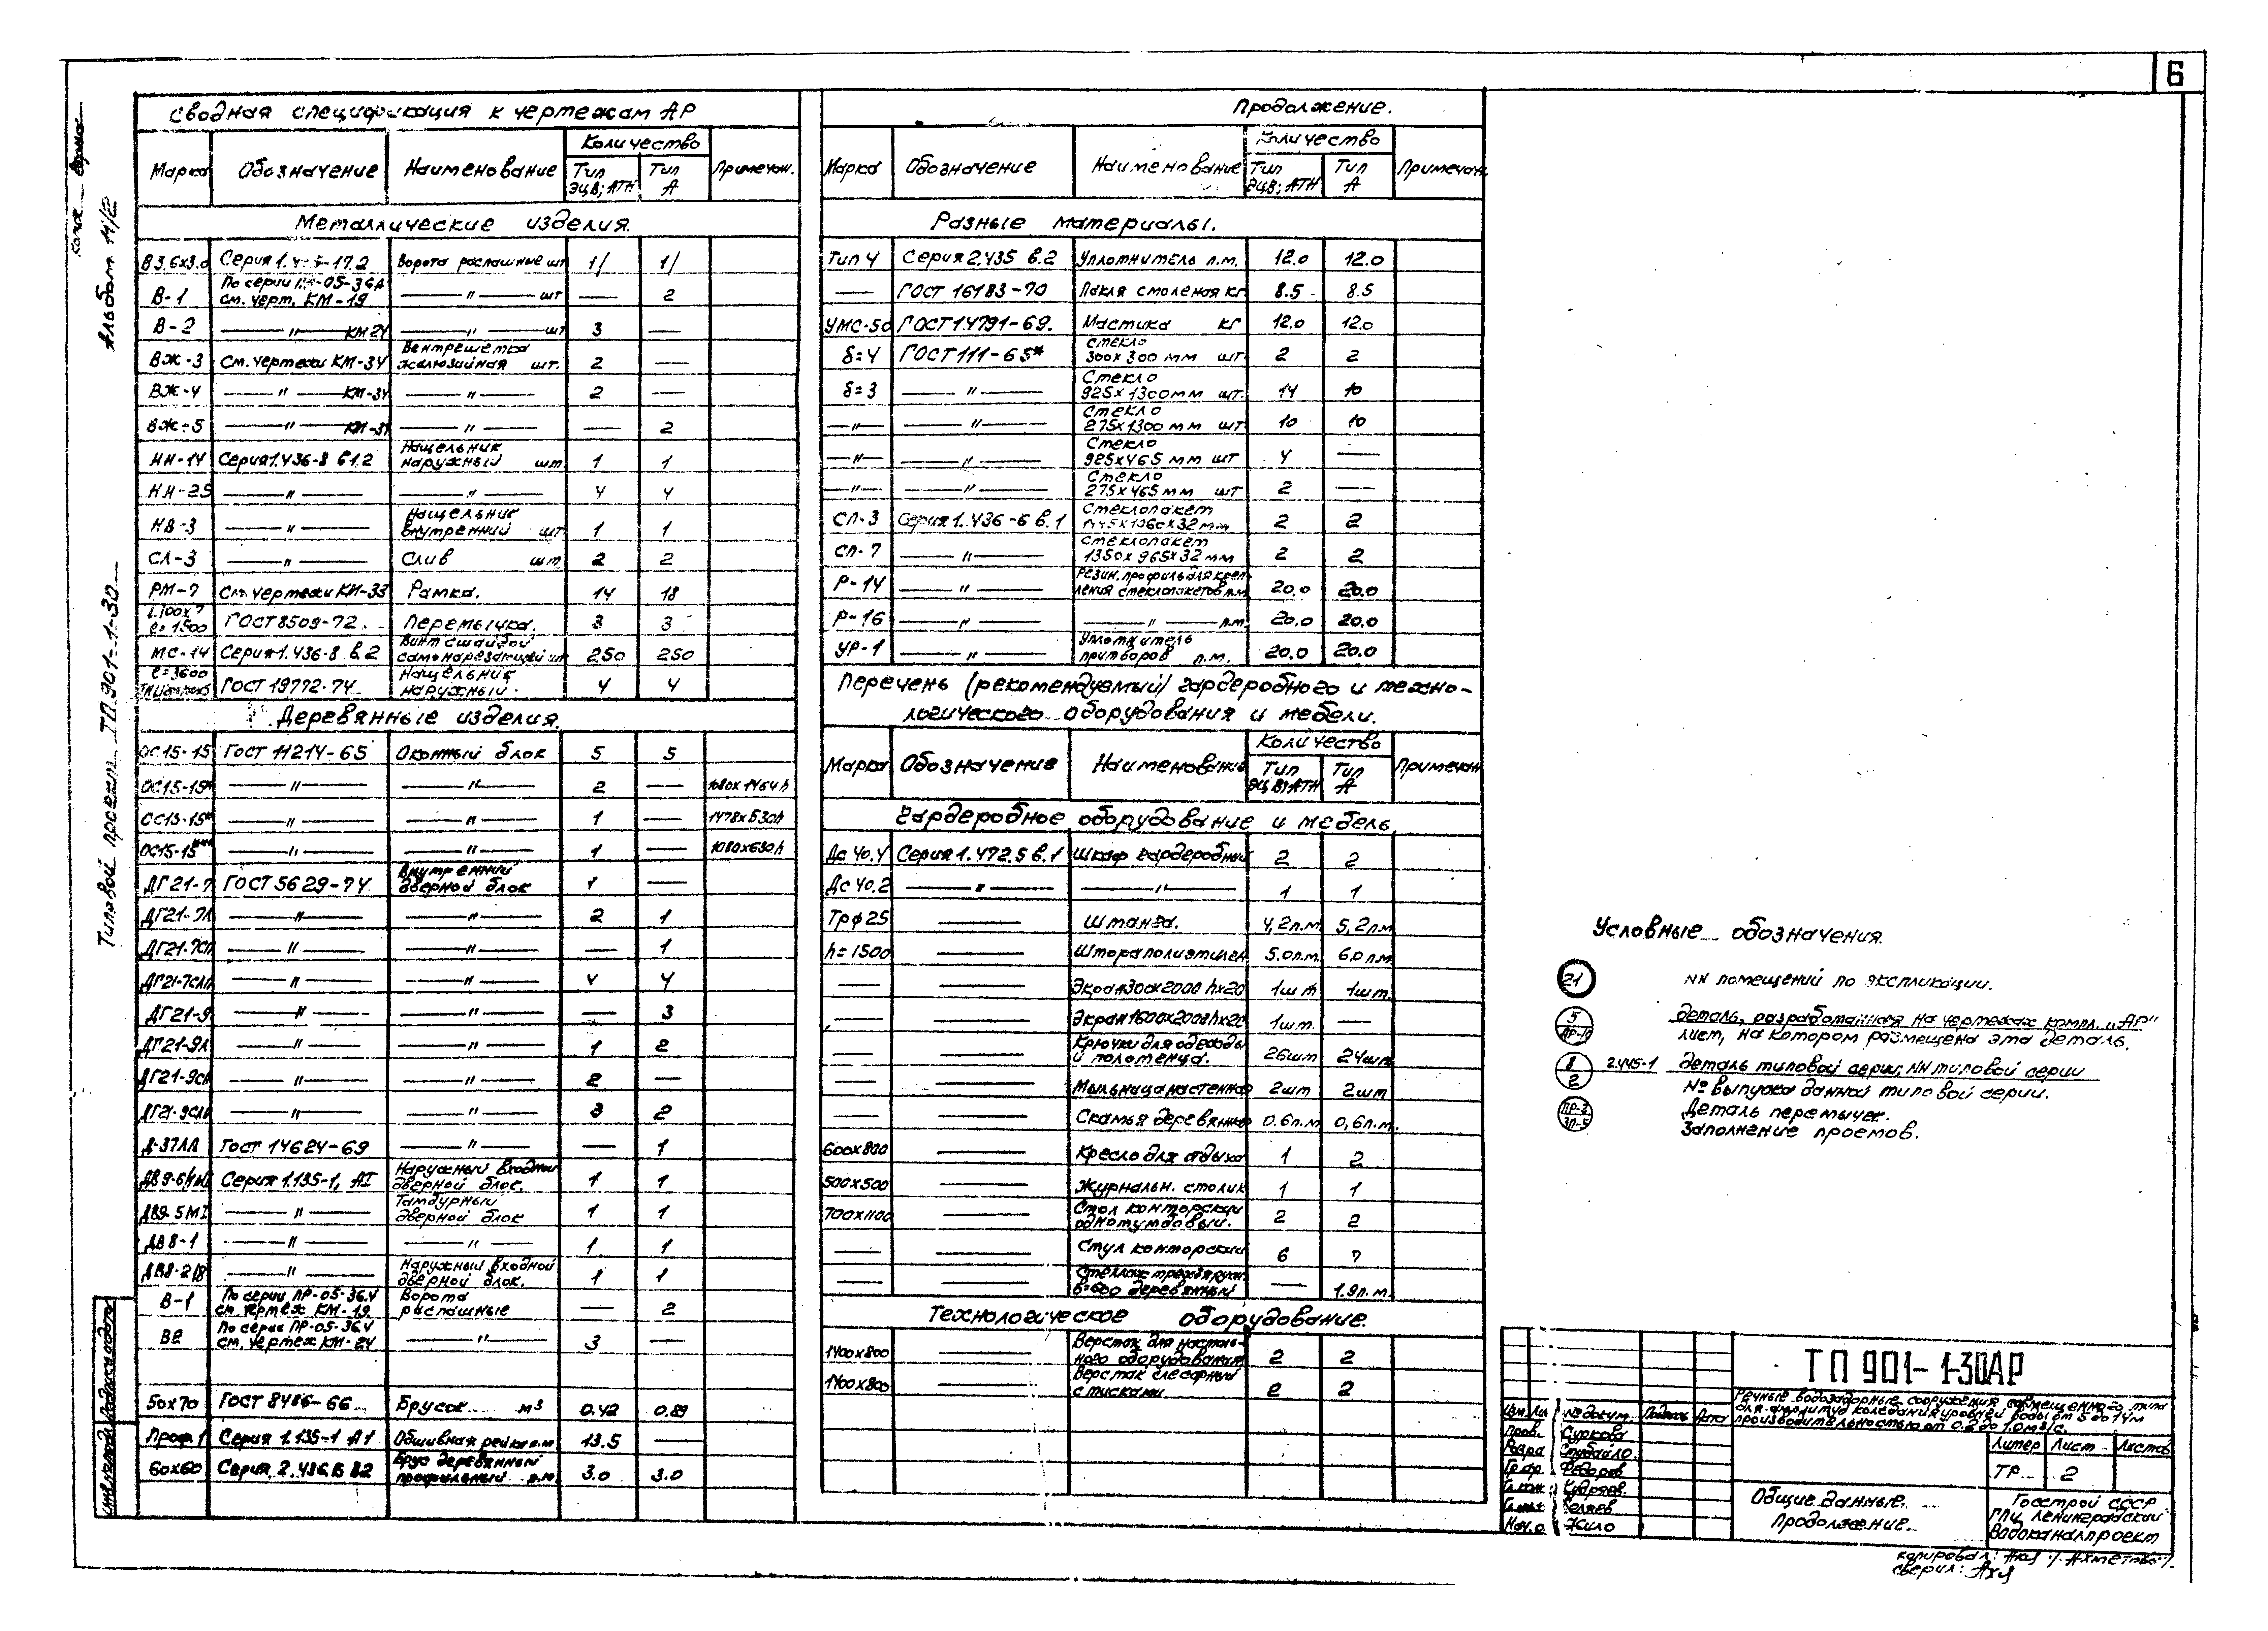 6
Альбом 11/2
Типовой проект ТП 901-1-30
Сводная спецификация к чертежам АР
Марка Обозначение Наименование Количество Примечан.
Тип ЭЦВ; АТН Тип А
Металлические изделия.
В3.6х3.0 Ворота распашные шт 1 1
По серии
В-1 см. черт. КМ-19 —〃— шт — 2
В-2 —〃— КМ24 —〃— шт 3 —
Вентрешетка
ВЖ-3 См. чертежи КМ-34 жалюзийная шт. 2 —
ВЖ-4 —〃— КМ-34 —〃— 2 —
ВЖ-5 —〃— —〃— — 2
Нащельник
НН-14 Серия 1.436-8 в1.2 наружный шт 1 1
НН-25 —〃— —〃— 4 4
Нащельник
НВ-3 —〃— внутренний шт 1 1
СЛ-3 —〃— Слив шт 2 2
РМ-7 См. чертежи КМ-33 Рамка. 14 18
ℓ=1500 ГОСТ 8509-72. Перемычка. 3 3
Винт с шайбой
МС-14 Серия 1.436-8 в.2 самонарезающий шт 250 250
ℓ=3600 Нащельник
ГОСТ 19772-74 наружный 4 4
Деревянные изделия.
ОС15-15 ГОСТ 11214-65 Оконный блок 5 5
ОС15-15* —〃— —〃— 2 — 1080х1464h
—〃— —〃— 1 — 1478х630h
ОС15-15*** —〃— —〃— 1 — 1080х630h
Внутренний
ДГ21-7 ГОСТ 5629-74 дверной блок 1 —
ДГ21-7Л —〃— —〃— 2 1
ДГ21-7СП —〃— —〃— — 1
ДГ21-7СЛП —〃— —〃— 4 4
ДГ21-9 —〃— —〃— — 3
ДГ21-9Л —〃— —〃— 1 2
ДГ21-9СП —〃— —〃— 2 —
ДГ21-9СЛП —〃— —〃— 3 2
Д-37ЛП ГОСТ 14624-69 —〃— — 1
Наружный входной
Серия 1.135-1, АI дверной блок. 1 1
Тамбурный
ДВ9-5МI —〃— дверной блок 1 1
ДВ8-1 —〃— —〃— 1 1
Наружный входной
—〃— дверной блок. 1 1
По серии ПР-05-36.4 Ворота
В-1 см. чертеж КМ-19. распашные — 2
По серии ПР-05-36.4
В2 см. чертеж КМ-24 —〃— 3 —
50х70 ГОСТ 8486-66 Брусок м³ 0.42 0.89
Проф 1 Серия 1.135-1 А1 Обшивная рейка п.м 13.5 —
Брус деревянный
60х60 профильный п.м. 3.0 3.0
Продолжение.
Марка Обозначение Наименование Количество Примечан.
Тип ЭЦВ; АТН Тип А
Разные материалы.
Тип 4 Серия 2.435 в.2 Уплотнитель п.м. 12.0 12.0
— ГОСТ 16183-70 Пакля смоленая кг 8.5 8.5
УМС-50 ГОСТ 14791-69. Мастика кг 12.0 12.0
Стекло
δ=4 ГОСТ 111-65* 300х300 мм шт. 2 2
Стекло
δ=3 —〃— 925х1300мм шт. 14 10
Стекло
—〃— —〃— 275х1300 мм шт 10 10
Стекло
—〃— —〃— 925х465 мм шт 4 —
Стекло
—〃— —〃— 275х465 мм шт 2 —
Стеклопакет
СП-3 Серия 1.436-6 в.1 2 2
Стеклопакет
СП-7 —〃— 1350х965х32 мм 2 2
Резин. профиль для креп-
Р-14 —〃— ления стеклопакетов п.м. 20.0 20.0
Р-16 —〃— —〃— п.м. 20.0 20.0
Уплотнитель
УР-1 —〃— притворов п.м. 20.0 20.0
Перечень (рекомендуемый) гардеробного и техно-
логического оборудования и мебели.
Марка Обозначение Наименование Количество Примечан
Тип ЭЦВ; АТН Тип А
Гардеробное оборудование и мебель
Дс 40.4 Серия 1.472.5 в.1 Шкаф гардеробный 2 2
Дс 40.2 —〃— —〃— 1 1
Трф25 — Штанга. 4,2п.м 5,2п.м
h=1500 — Штора полиэтилен 5.0п.м. 6.0п.м
— — 1шт 1шт.
— — 1шт. —
Крючки для одежды
— — и полотенца. 26шт 24шт
— — Мыльница настенная 2шт 2шт
— — Скамья деревянная 0.6п.м 0,6п.м.
600х800 — Кресло для отдыха 1 2
500х500 — Журнальн. столик 1 1
Стол конторский
700х1100 — однотумбовый. 2 2
— — Стул конторский 6 7
Стеллаж трехъярусн.
— — в=600 деревянный — 1.9п.м.
Технологическое оборудование.
Верстак для настоль-
1400х800 — ного оборудования 2 2
Верстак слесарный
1400х800 — с тисками 2 2
Условные обозначения.
21 NN помещений по экспликации.
5 деталь, разработанная на чертежах компл. „АР"
лист, на котором размещена эта деталь.
8 2.445-1 деталь типовой серии; NN типовой серии
2 № выпуска данной типовой серии.
ПР-3 Деталь перемычек.
ЗП-5 Заполнение проемов.
ТП 901-1-30АР
Речные водозаборные сооружения совмещенного типа
для амплитуд колебания уровней воды от 6 до 14м
производительностью от 0.6 до 1.0м³/с.
Изм. Лис № докум. Подпись Дата
Пров. Суркова
Разра
Гр. ар. Федоров
Гл. кон. Кудряв.
Беляев
Нач. о Жило
Литер Лист Листов
ТР 2
Общие данные.
Продолжение.
Госстрой СССР
ГПИ Ленинградский
Водоканалпроект
копировал: Ахметова
сверил: